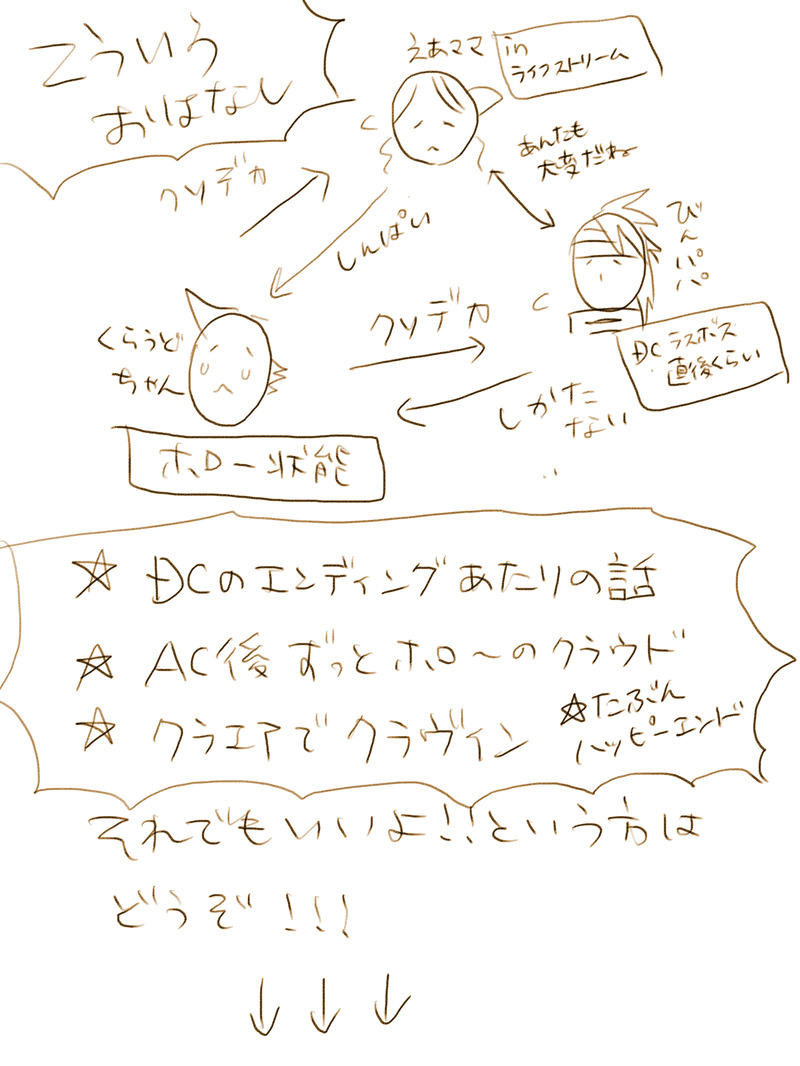 こういう
おはなし
えあママ
in
ライフストリーム
あんたも
大変だね
クソデカ
しんぱい
びんパパ
くらうど
ちゃん
クソデカ
DCラスボス
直後くらい
しかた
ない
ホロー状態
☆ DCのエンディングあたりの話
☆ AC後ずっとホローのクラウド
☆ クラエアでクラヴィン
☆たぶん
ハッピーエンド
それでもいいよ!!という方は
どうぞ!!!
↓↓↓